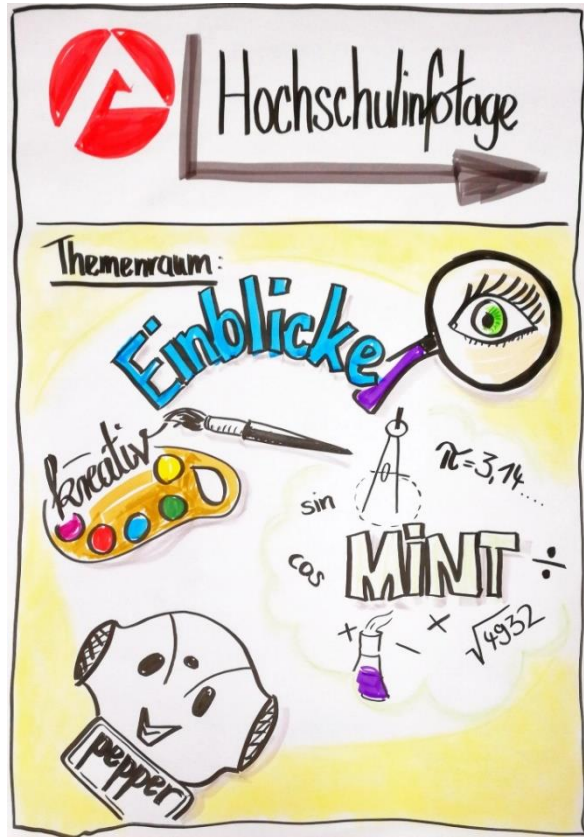 Hochschulinfotage
Themenraum:
Einblicke
kreativ
π=3,14....
sin
cos
MiNT ÷
+ - x
√4932
pepper